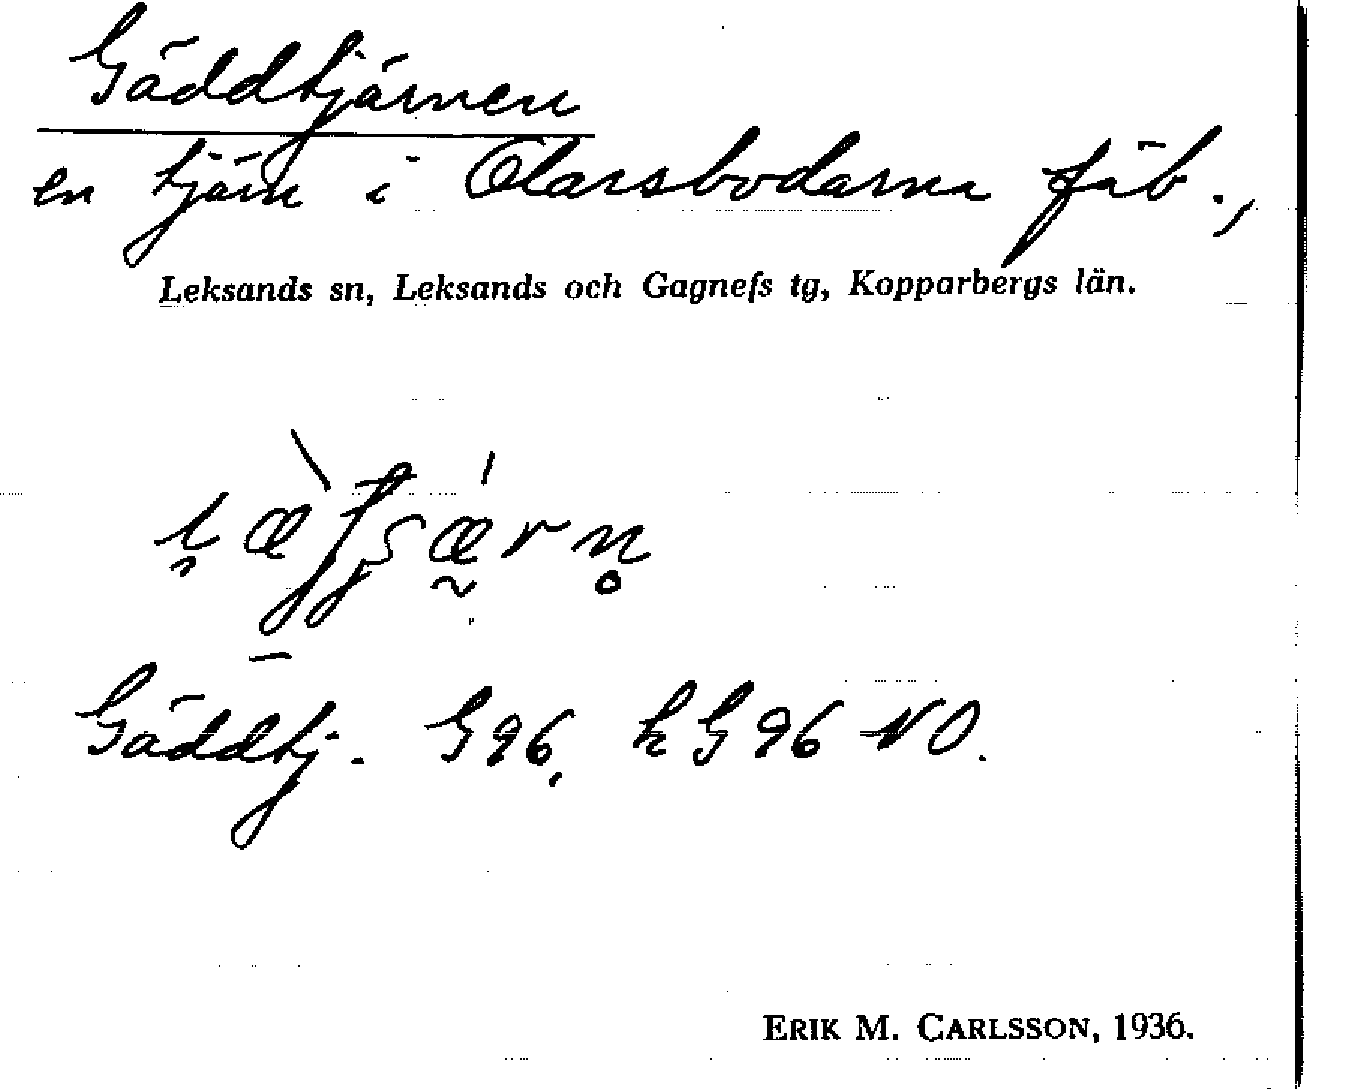 Gäddtjärnen
en tjärn i Olarsbodarna fäb.,
Leksands sn, Leksands och Gagnefs tg, Kopparbergs län.
Gäddtj. G96, kG96 NO.
ERIK M. CARLSSON, 1936.